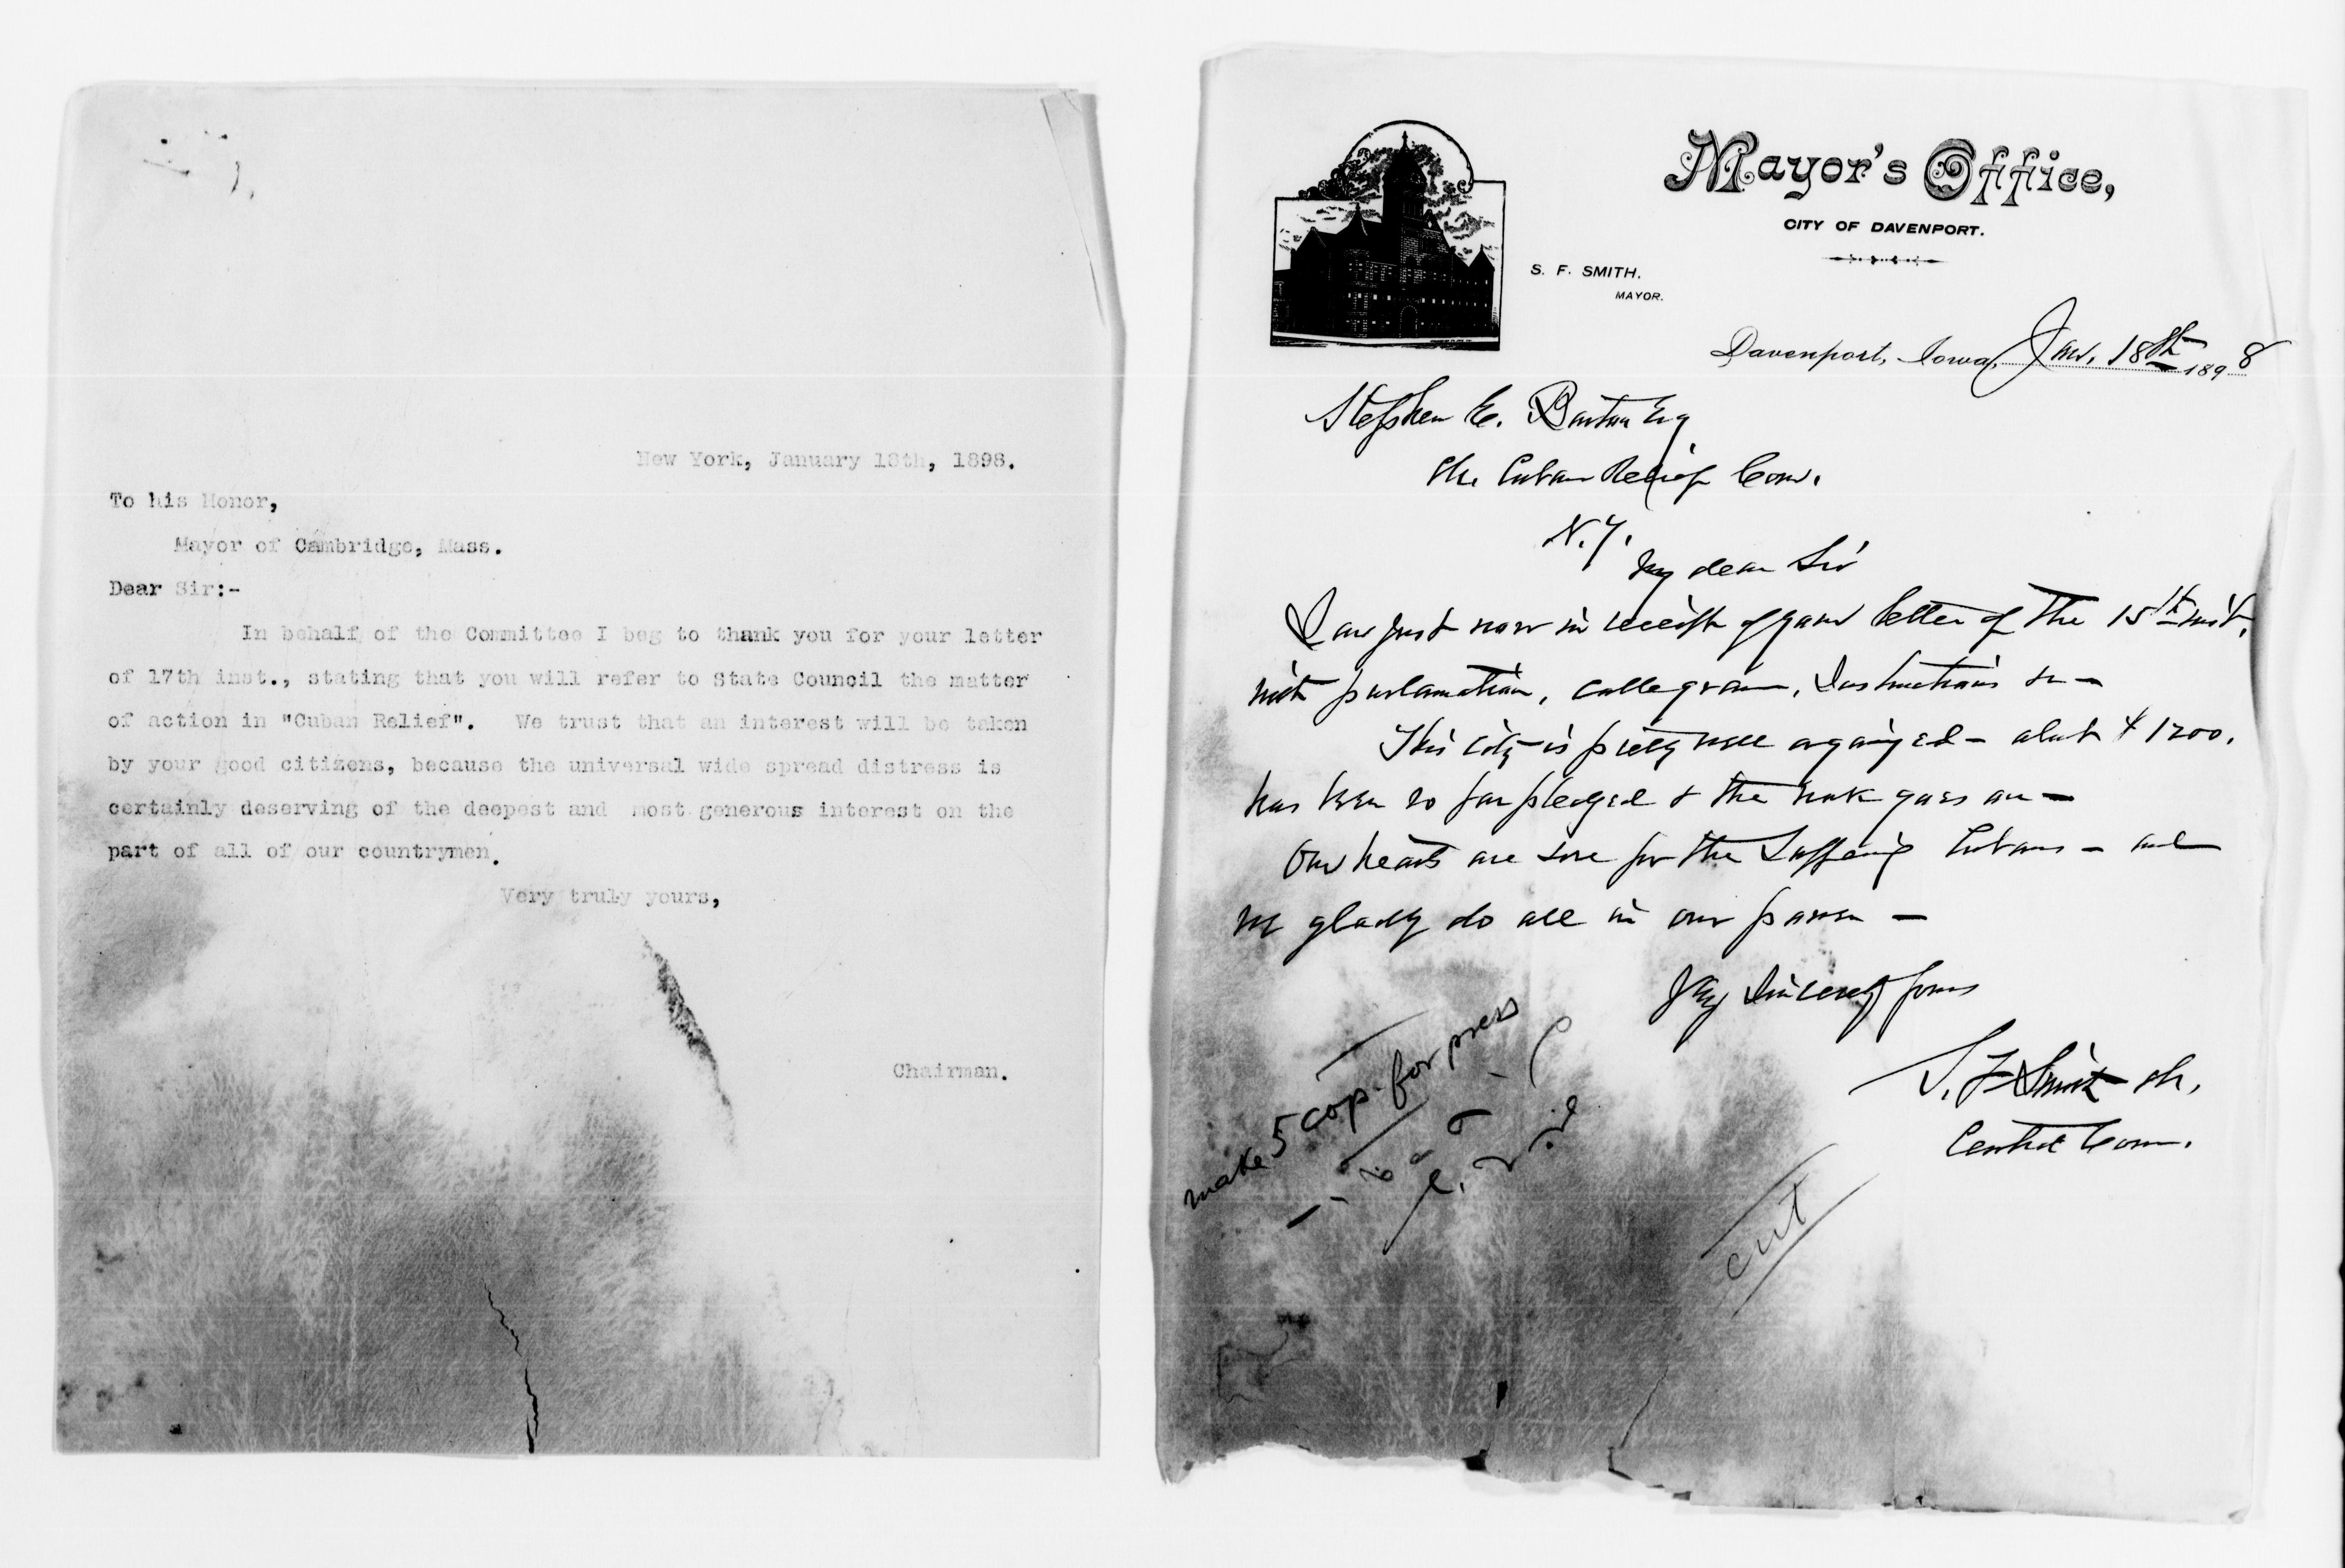 New York, January 18th, 1898.
To his Honor,
Mayor of Cambridge, Mass.
Dear Sir:-
In behalf of the Committee I beg to thank you for your letter
of 17th inst., stating that you will refer to State Council the matter
of action in "Cuban Relief". We trust that an interest will be taken
by your good citizens, because the universal wide spread distress is
certainly deserving of the deepest and most generous interest on the
part of all of our countrymen.
Very truly yours,
Chairman.
Mayor's Office,
CITY OF DAVENPORT.
S. F. SMITH.
MAYOR.
Davenport, Iowa, Jan. 18th 1898
Stephen E. Barton Esq
Ch. Cuban Relief Com.
N.Y.
My dear Sir
I am just now in receipt of your letter of the 15th inst,
with proclamation, cablegram, Instructions &c -
This city is pretty well organized - about $1200.
has been so far pledged & the work goes on -
Our hearts are sore for the Suffering Cubans - and
we gladly do all in our power -
Very Sincerely yours
S. F. Smith ch.
Central Com.
make 5 cop. for press
cut